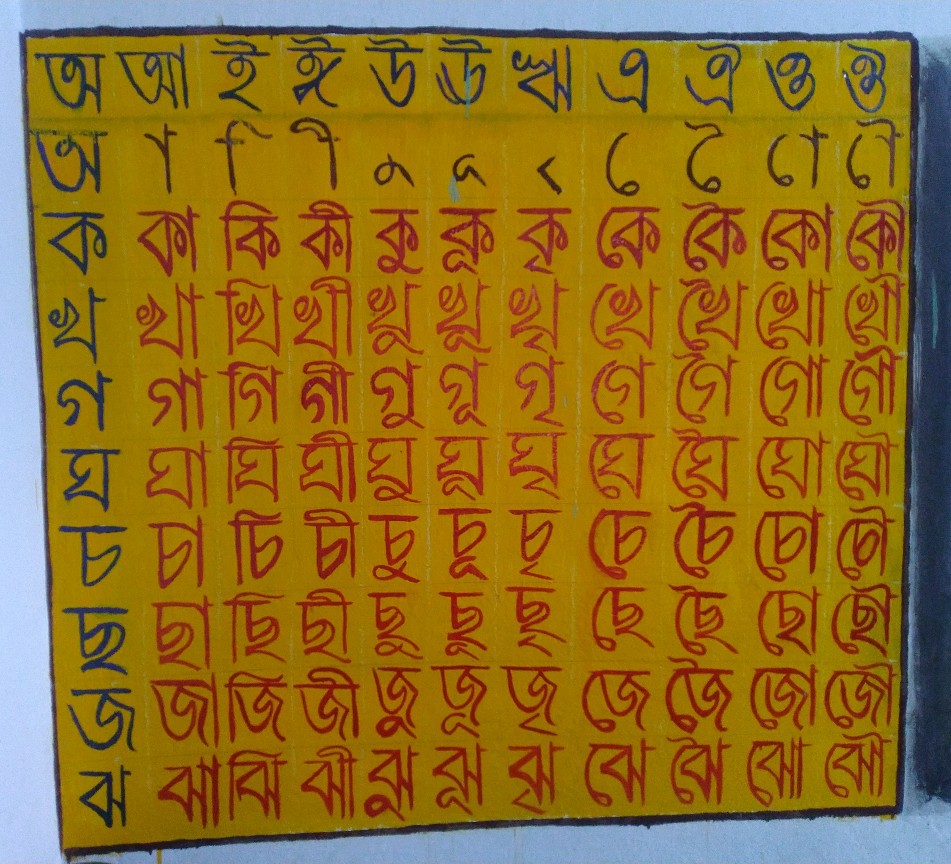 অ আ ই ঈ উ ঊ ঋ এ ঐ ও ঔ
অ া ি ী ু ূ ৃ ে ৈ ো ৌ
ক কা কি কী কু কূ কৃ কে কৈ কো কৌ
খ খা খি খী খু খূ খৃ খে খৈ খো খৌ
গ গা গি গী গু গূ গৃ গে গৈ গো গৌ
ঘ ঘা ঘি ঘী ঘু ঘূ ঘৃ ঘে ঘৈ ঘো ঘৌ
চ চা চি চী চু চূ চৃ চে চৈ চো চৌ
ছ ছা ছি ছী ছু ছূ ছৃ ছে ছৈ ছো ছৌ
জ জা জি জী জু জূ জৃ জে জৈ জো জৌ
ঝ ঝা ঝি ঝী ঝু ঝূ ঝৃ ঝে ঝৈ ঝো ঝৌ